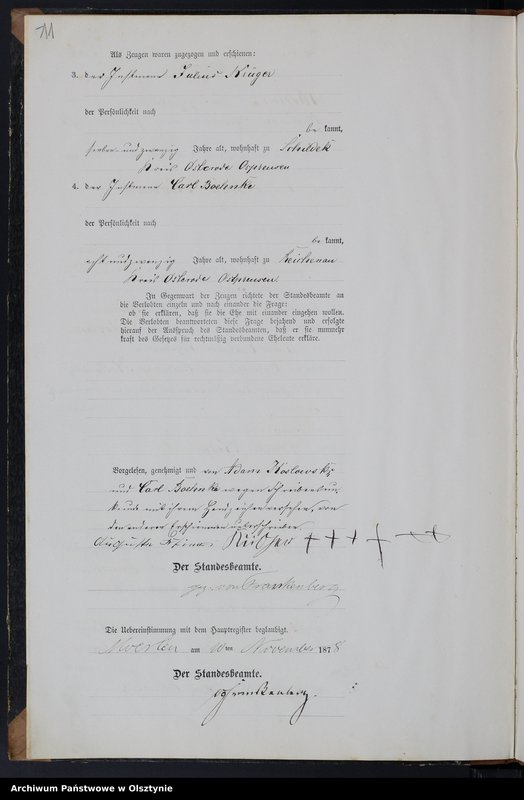 11
Als Zeugen waren zugezogen und erschienen:
3. der Instmann Julius Krüger
der Persönlichkeit nach
be kannt,
sieben und zwanzig Jahre alt, wohnhaft zu Schildek
Kreis Osterode Ostpreussen
4. der Instmann Carl Boehnke
der Persönlichkeit nach
be kannt,
acht und zwanzig Jahre alt, wohnhaft zu Reichenau
Kreis Osterode Ostpreussen.
In Gegenwart der Zeugen richtete der Standesbeamte an
die Verlobten einzeln und nach einander die Frage:
ob sie erklären, daß sie die Ehe mit einander eingehen wollen.
Die Verlobten beantworteten diese Frage bejahend und erfolgte
hierauf der Ausspruch des Standesbeamten, daß er sie nunmehr
kraft des Gesetzes für rechtmäßig verbundene Eheleute erkläre.
Vorgelesen, genehmigt und von Adam Koslowsky
und Carl Boehnke wegen Schreibensun
kunde mit ihrem Handzeichen versehen, von
den anderen Erschienenen unterschrieben
Auguste Krüger +++ + ++
Der Standesbeamte.
gez. von Frankenberg
Die Uebereinstimmung mit dem Hauptregister beglaubigt.
am 10 ten November 1878
Der Standesbeamte.
vFrankenberg.
Archiwum Państwowe w Olsztynie